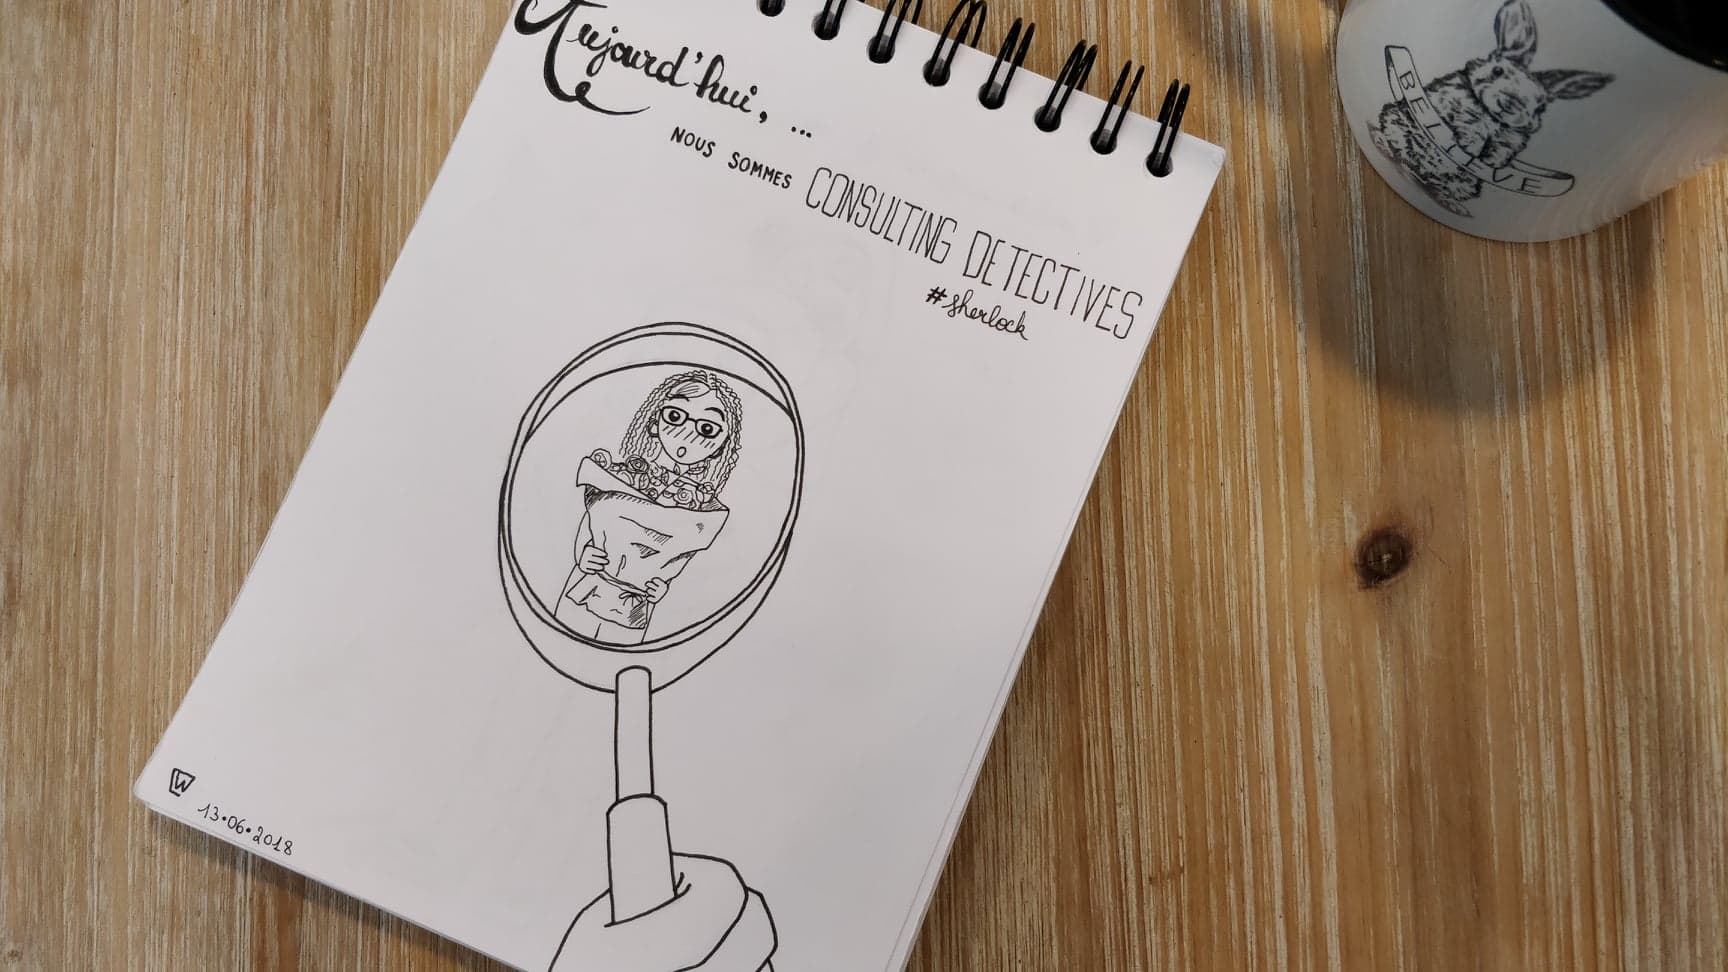 Aujourd'hui, ...
NOUS SOMMES CONSULTING DETECTIVES
#sherlock
W
13.06.2018
BELIEVE